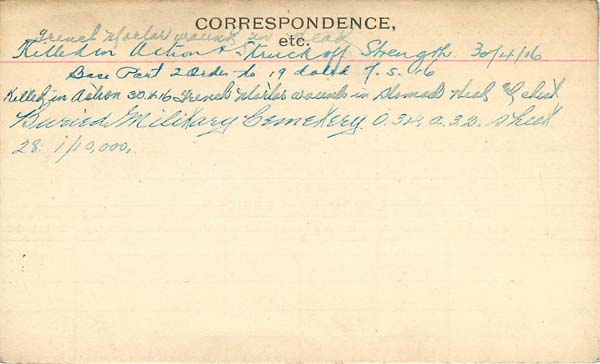 CORRESPONDENCE,
etc.
Trench Mortar wound in Head
Killed in Action & Struck off Strength. 30/4/16
Base Part 2 Order No 19 dated 7.5.16
Killed in Action 30.4.16 Trench Mortar wounds in Stomach Head & chest
Buried Military Cemetery. O.3.d. Sheet
28. 1/10,000.